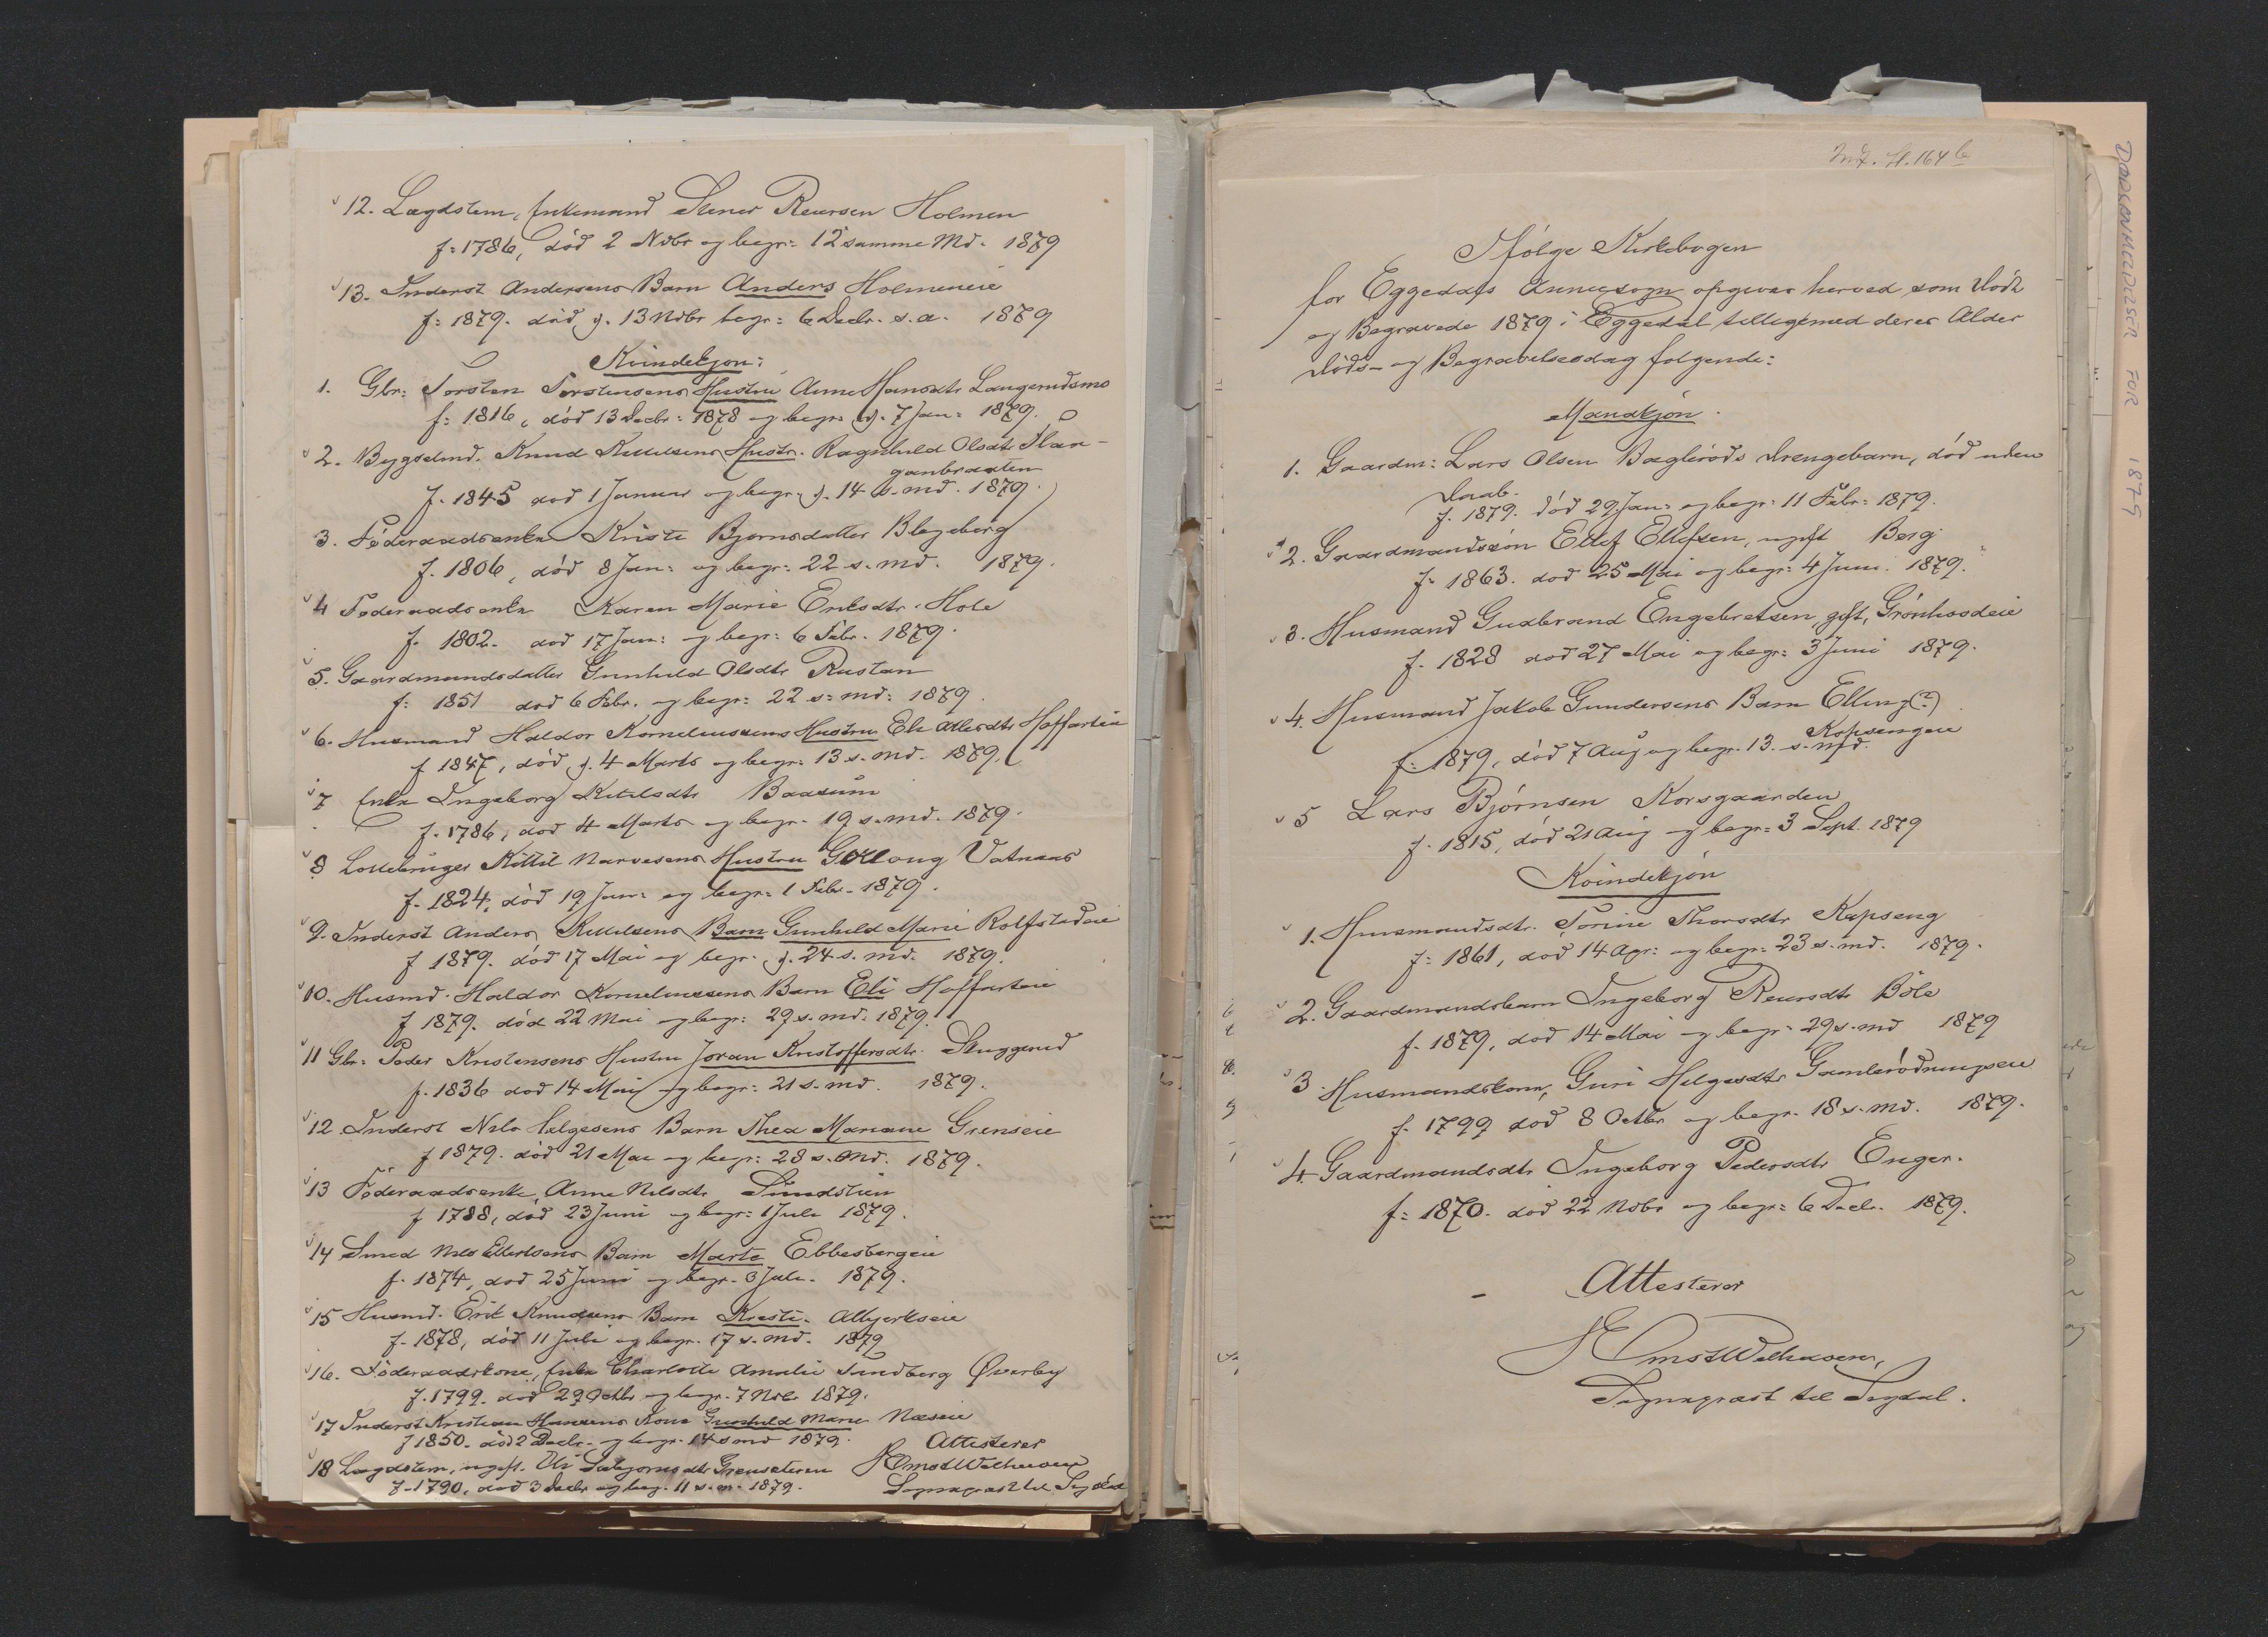 12. Lægdslem, Enkemand Stener Reiersen Holmen
f: 1786, død 2 Novbr og begr: 12 samme Md. 1879
13. Inderst Andersens Barn Anders Holmeneie
f: 1879. død d. 13 Novbr begr: 6 Decbr. s. a. 1879
Kvindekjøn:
1. Gbr: Torsten Torstensens Hustru Anne Hansdtr Langerudsmo
f: 1816, død 13 Decbr: 1878 og begr. d. 7 Jan: 1879.
2. Bygselmd. Knud Kittilsens Hustr. Ragnhild Olsdtr
f. 1845 død 1 Januar og begr. d. 14 s. md. 1879.
3. Føderaadsenke Kristi Bjørnsdatter
f. 1806, død 8 Jan: og begr: 22 s. md. 1879.
4 Føderaadsenke Karen Marie Eriksdtr. Hole
f. 1802. død 17 Jan: og begr: 6 Febr. 1879.
5. Gaardmandsdatter Gunhild Olsdtr Rustan
f: 1851 død 6 Febr. og begr: 22 s: md: 1879.
6. Husmand Haldor Korneliussens Hustru Eli Hoffarteie
f 1847, død d. 4 Marts og begr: 13 s. md. 1879.
7 Enke Ingeborg Kittilsdtr Baasum
f. 1786, død 4 Marts og begr. 19 s. md. 1879.
8 Kittil Narvesens Hustru Vatnaas
f. 1824, død 19 Jan: og begr: 1 Febr. 1879.
9. Inderst Anders Kittilsens Barn Gunhild Marie Rolfstadeie
f 1879. død 17 Mai og begr. d. 24 s. md. 1879.
10. Husmd. Haldor Korneliussens Barn Eli Hoffarteie
f 1879. død 22 Mai og begr: 29 s. md. 1879.
11 Gbr: Peder Kristensens Hustru Joran Kristoffersdtr. Skuggerud
f. 1836 død 14 Mai og begr: 21 s. md. 1879.
12. Inderst Nils Helgesens Barn Thea Mariane Grenseie
f 1879. død 21 Mai og begr: 28 s. md. 1879.
13 Føderaadsenke Anne Nilsdtr
f 1788, død 23 Juni og begr: 1 Juli 1879.
14 Smed Nils Ellertsens Barn Marte Ebbesbergeie
f. 1874, død 25 Juni og begr. 3 Juli. 1879.
15 Husmd. Erik Knudsens Barn Kristi.
f. 1878, død 11 Juli og begr. 17 s. md. 1879
16. Føderaadskone, Enke Charlotte Amalie Sundberg Øverby
f. 1799. død 29 Octbr og begr. 7 Nvbr 1879.
17 Inderst Kristian Hansens Kone Gunhild Marie Næseie
f 1850. død 2 Decbr. og begr. 14 s md 1879.
Attesterer
18 Lægdslem, ugift.
f. 1790, død 3 Decbr og beg. 11 s. m. 1879.
Ernst Welhaven
Sognepræst til Sigdal
fol. 164 b
Ifølge Kirkebogen
for Eggedals Annexsogn opgives herved som døde
og Begravede 1879 i Eggedal tilligemed deres Alder
Døds- og Begravelsesdag følgende:
Mandkjøn.
1. Gaardm: Lars Olsen Drengebarn, død uden
Daab.
f. 1879. død 29 Jan: og begr: 11 Febr: 1879.
2. Gaardmandssøn Ellef Ellefsen, ugift Berg
f. 1863. død 25 Mai og begr: 4 Juni. 1879.
3. Husmand Gudbrand Engebretsen, gift, Grønhovdeie
f. 1828 død 27 Mai og begr: 3 Juni 1879.
4. Husmand Jakob Gundersens Barn Elling (?)
Kopsengeie
f. 1879, død 7 Aug og begr. 13. s. md.
5 Lars Bjørnsen Korsgaarden
f. 1815, død 21 Aug og begr: 3 Sept. 1879
Kvindekjøn
1. Husmandsdtr. Torine Thorsdtr Kopseng
f: 1861, død 14 Apr: og begr: 23 s. md. 1879.
2. Gaardmandsbarn Ingeborg Reiersdtr Bøle
f. 1879, død 14 Mai og begr. 29 s. md 1879
3. Husmandskone, Guri Helgesdtr
f. 1799 død 8 Octbr og begr. 18 s. md. 1879.
4. Gaardmandsdtr Ingeborg Pedersdtr Enger.
f: 1870. død 22 Novbr og begr: 6 Decbr. 1879.
Attesterer
Ernst Welhaven,
Sognepræst til Sigdal.
DØDSANMELDELSER FOR 1879